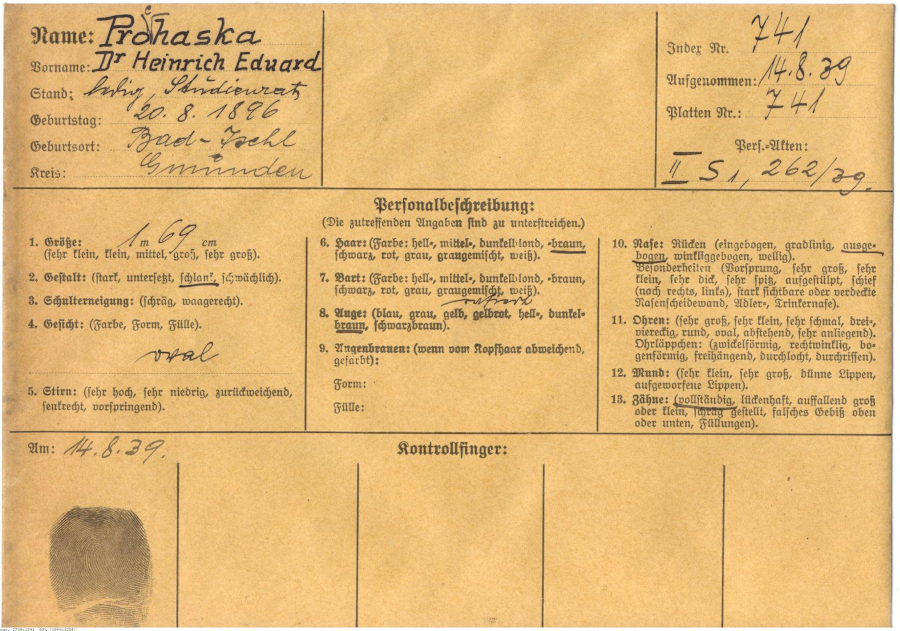 Name: Prohaska
Vorname: Dr Heinrich Eduard
Stand: ledig, Studienrat
Geburtstag: 20. 8. 1896
Geburtsort: Bad-Ischl
Kreis: Gmünden
Index Nr. 741
Aufgenommen: 14.8.39
Platten Nr.: 741
Pers.-Akten:
II S 1, 262/39.
Personalbeschreibung:
(Die zutreffenden Angaben sind zu unterstreichen.)
1. Größe: 1 m 69 cm
(sehr klein, klein, mittel, groß, sehr groß).
2. Gestalt: (stark, untersetzt, schlank, schwächlich).
3. Schulterneigung: (schräg, waagerecht).
4. Gesicht: (Farbe, Form, Fülle).
oval
5. Stirn: (sehr hoch, sehr niedrig, zurückweichend,
senkrecht, vorspringend).
6. Haar: (Farbe: hell-, mittel-, dunkelblond, -braun,
schwarz, rot, grau, graugemischt, weiß).
7. Bart: (Farbe: hell-, mittel-, dunkelblond, -braun,
schwarz, rot, grau, graugemischt, weiß).
8. Auge: (blau, grau, gelb, gelbrot, hell-, dunkel-
braun, schwarzbraun).
9. Augenbrauen: (wenn vom Kopfhaar abweichend,
gefärbt):
Form:
Fülle:
10. Nase: Rücken (eingebogen, gradlinig, ausge-
bogen, winkliggebogen, wellig).
Besonderheiten (Vorsprung, sehr groß, sehr
klein, sehr dick, sehr spitz, aufgestülpt, schief
(nach rechts, links), stark sichtbare oder verdeckte
Nasenscheidewand, Adler-, Trinkernase).
11. Ohren: (sehr groß, sehr klein, sehr schmal, drei-,
viereckig, rund, oval, abstehend, sehr anliegend).
Ohrläppchen: (zwickelförmig, rechtwinklig, bo-
genförmig, freihängend, durchlocht, durchrissen).
12. Mund: (sehr klein, sehr groß, dünne Lippen,
aufgeworfene Lippen).
13. Zähne: (vollständig, lückenhaft, auffallend groß
oder klein, schräg gestellt, falsches Gebiß oben
oder unten, Füllungen).
Am: 14.8.39.
Kontrollfinger: